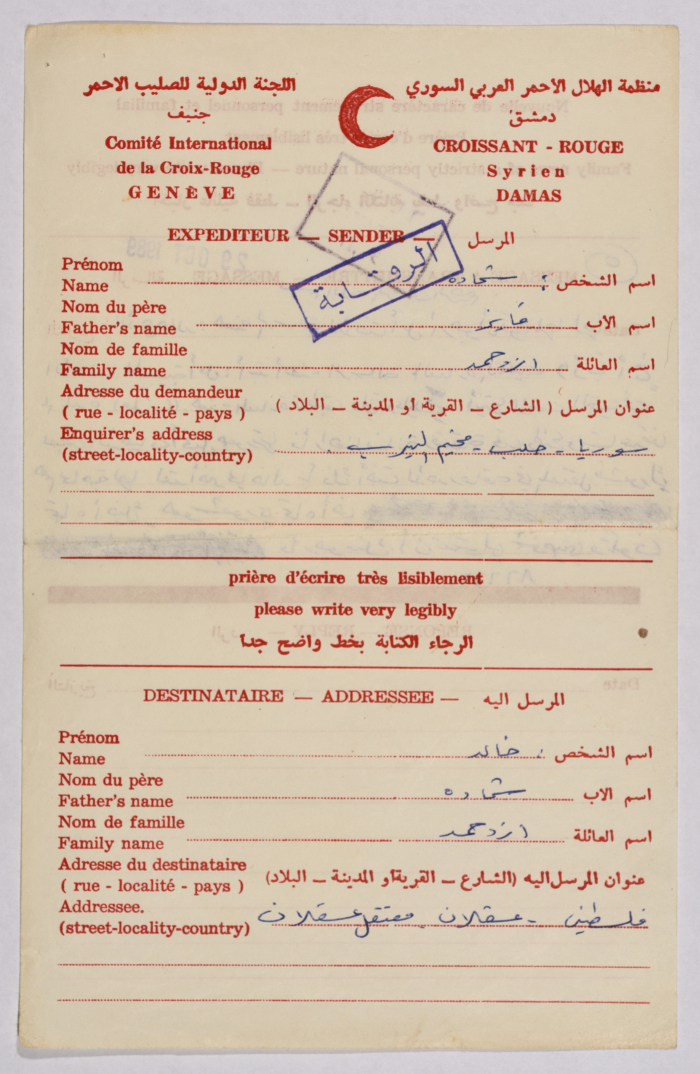 منظمة الهلال الاحمر العربي السوري
اللجنة الدولية للصليب الاحمر
دمشق
جنيف
Comité International
de la Croix-Rouge
GENÈVE
CROISSANT - ROUGE
Syrien
DAMAS
EXPEDITEUR — SENDER — المرسل
الرقابة
Prénom
Name اسم الشخص : شحاده
Nom du père
Father's name اسم الاب فايز
Nom de famille
Family name اسم العائلة
Adresse du demandeur
( rue - localité - pays ) عنوان المرسل ( الشارع ـ القرية أو المدينة ـ البلاد )
Enquirer's address
(street-locality-country) سوريا - حلب - مخيم النيرب .
prière d'écrire très lisiblement
please write very legibly
الرجاء الكتابة بخط واضح جدا
DESTINATAIRE — ADDRESSEE — المرسل اليه
Prénom
Name اسم الشخص : خالد
Nom du père
Father's name اسم الاب شحاده
Nom de famille
Family name اسم العائلة
Adresse du destinataire
( rue - localité - pays ) عنوان المرسل اليه (الشارع ـ القرية أو المدينة ـ البلاد)
Addressee.
(street-locality-country) فلسطين - عسقلان - معتقل عسقلان